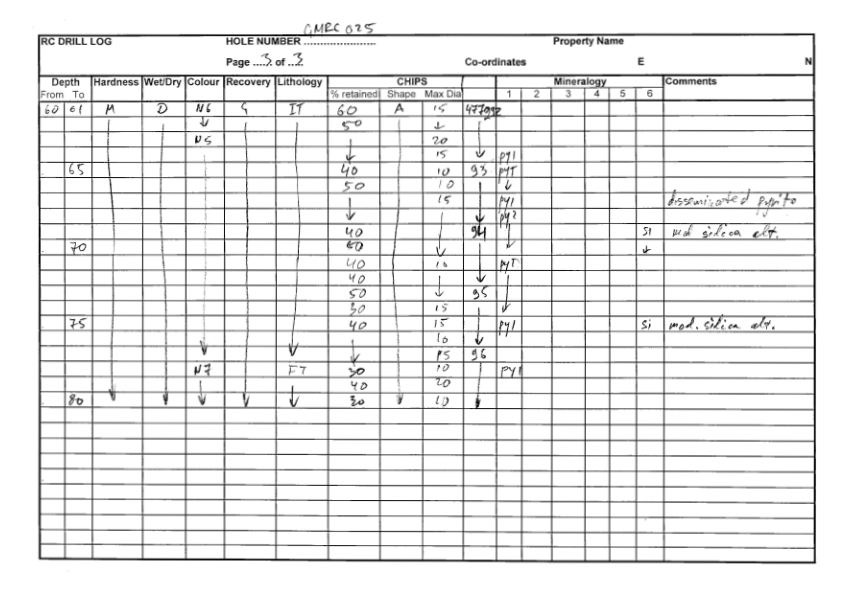 GMRC 025
RC DRILL LOG HOLE NUMBER ........................ Property Name
Page ....3. of ..3 Co-ordinates E N
Depth Hardness Wet/Dry Colour Recovery Lithology CHIPS Mineralogy Comments
From To % retained Shape Max Dia 1 2 3 4 5 6
60 61 M D N6 G IT 60 A 15 477992
↓ 50 ↓
N5 20
↓ 15 ↓ py1
65 40 10 93 pyT
50 10 ↓
15 py1 disseminated pyrite
↓ ↓ py2
40 94 Si mod silica alt.
70 60 ↓ ↓ ↓
40 10 pyT
40 ↓
50 ↓ 95
30 15 ↓
75 40 15 py1 Si mod. silica alt.
10 ↓
↓ ↓ ↓ 15 96
N7 FT 30 10 py1
40 20
80 ↓ ↓ ↓ ↓ ↓ 30 ↓ 10 ↓